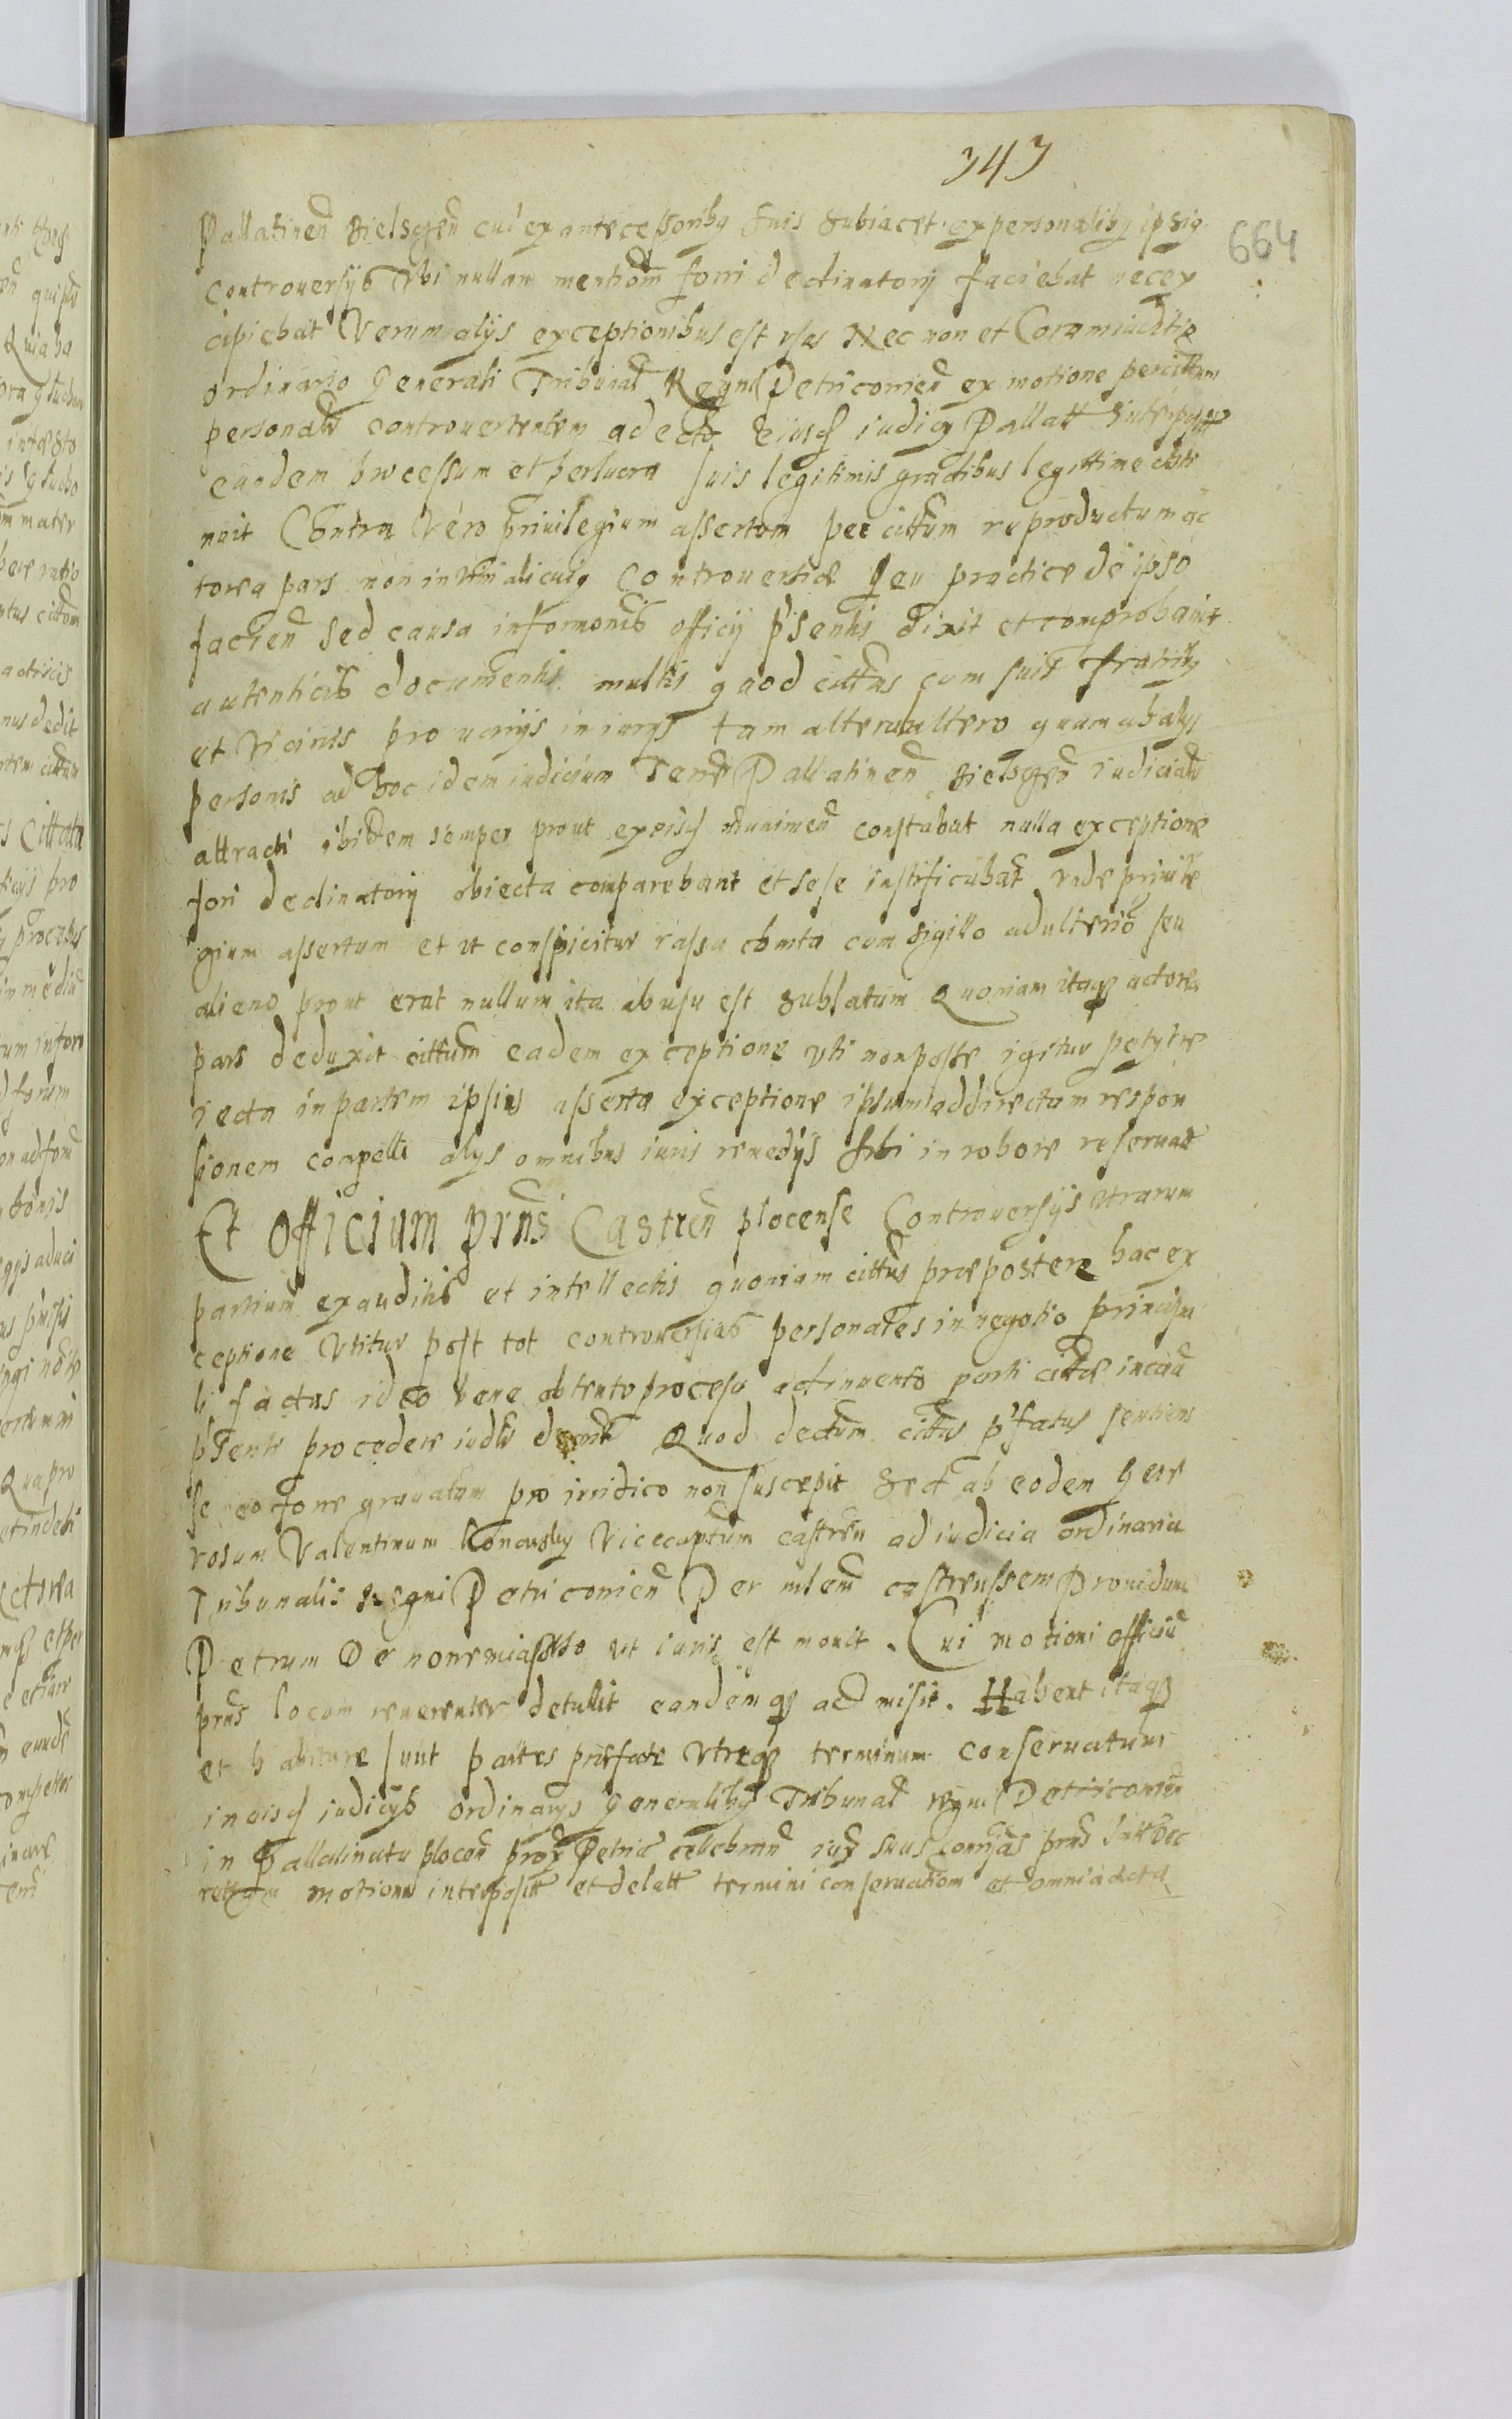 343
664
Pallatinen Bielscen cui ex antecessoribq suis subiacet ex personalibq ipsiq
controuersijs Vbi nullam mentiom forri declinatorij faciebat nec ex
cipiebat Verum alijs exceptionibus est vsus Nec non et Coram iuditio
ordinario Generali Tribunal Regni Petriconien ex motione per citum
personalr controuertentem ad ectq eiusq iudicij Pallatt interpositt
eundem processum et perlucra suis legitimis gradibus legittime obti
nuit Contra Vero priuilegium assertum per cittum reproductum ac
torea pars non in vim alicuiq Controuersiae seu practice de ipso
facien sed causa informonis officij psentis dixit et comprobauit
autenticis documentis multis quod cittus cum suis fratribq
et vicinis pro varijs iniurijs tam alter ab altero quam ab alijs
personis ad hoc idem iudicium Terre Pallatinen Bielscen iudicialr
attracti ibidem semper prout ex eisq munimen constabat nulla exceptione
fori declinatorij obiecta comparebant et sese iustificabat vnde priuile
gium assertum et ut conspicitur rassa charta cum sigillo adulterio seu
alieno prout erat nullum ita abusu est sublatum Quoniam itaq actorea
pars deduxit cittum eadem exceptione vti non posse igitur petyt re
iecta in partem ipsius asserta exceptione ipsum ad directam respon
sionem compelli alijs omnibus iuris remedijs sibi in robore reseruatt
Et officium prns Castren plocense Controuersijs vtrarum
partium exauditis et intellectis quoniam cittus praepostere hac ex
ceptione vtitur post tot controuersias personales in negotio principa
li factas ideo bene obtento processu adinuento parti citte in causa
psenti procedere iudr Quod dectum cittus pfatus sentiens
se eo fore grauatum pro iuridico non suscepit sed ab eodem Gene
rosum Valentinum Konarsky Vicecaptum castren ad iudicia ordinaria
Tribunalis Regni Petriconien Per mlem castrensem Prouidum
Petrum De ut iuris est mouit. Cui motioni officiu
prns locum reuerenter detulit eandemq admisit. Habent itaq
et habiture sunt partes praefate vtreq terminum conseruatum
in eisq iudicijs ordinarijs generalibq Tribunal regni Petriconien
in Pallatinatu plocen prox Petric celebran iux suas contijas prns
motionis interposit et delatt termini conseruatiom et omnia acta